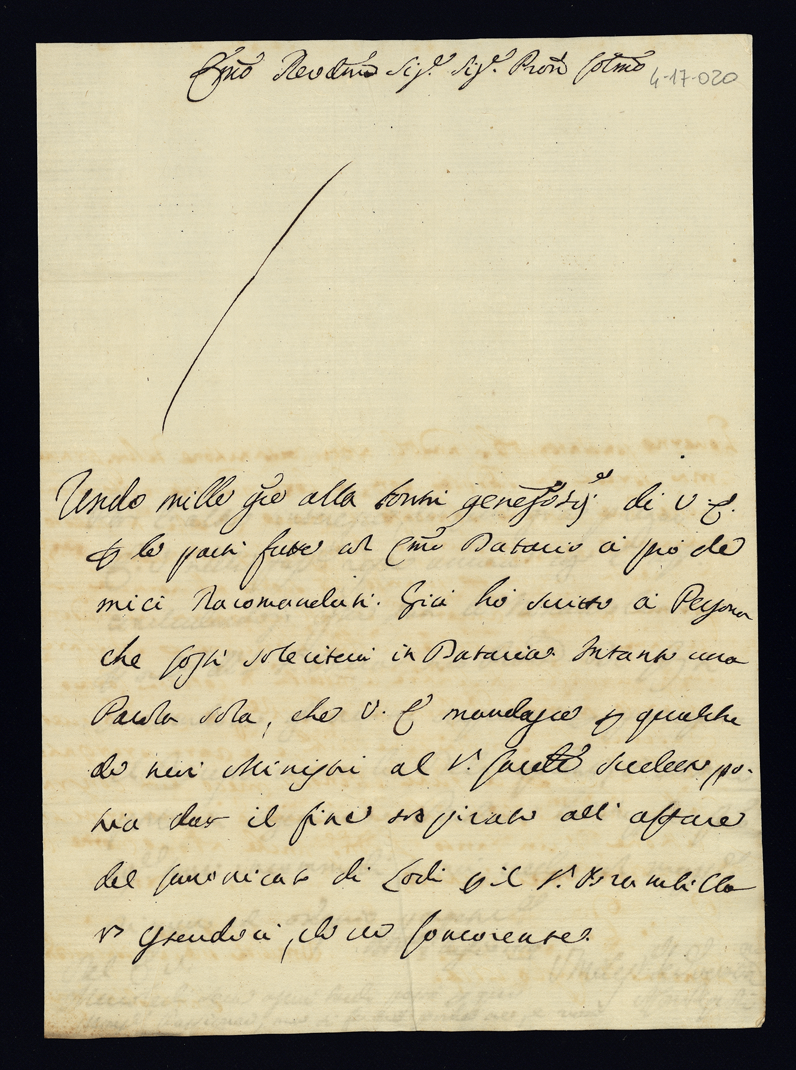 Emo Revdmo Sigr Sigr Pron Colmo
4-17-020
Rendo mille gre alla somma generosità di V. E.
p le parti fatte col Emo Datario a prò de
miei Racomandati. Già hò scritto a Persona
che solleciterà in Dataria. Intanto una
Parola sola, che V. E. mandasse p qualche
de suoi Ministri al Sr. potria
dar il fine sospirato all' affare
del Canonicato di Lodi p il Sr. Brambilla
concorente.